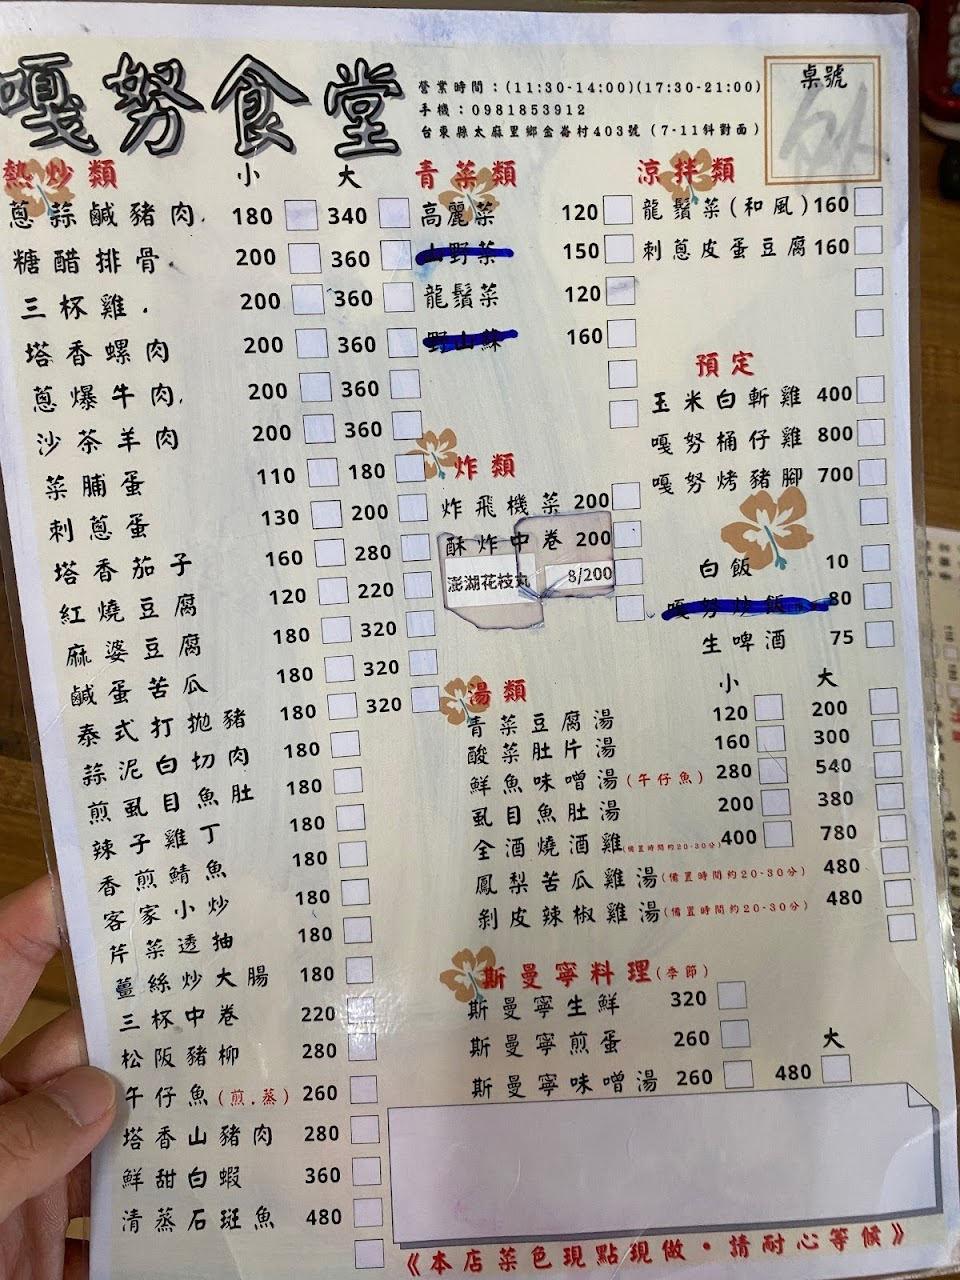 嘎努食堂
營業時間：(11:30-14:00)(17:30-21:00)
手機：0981853912
台東縣太麻里鄉金崙村403號 (7-11斜對面)
桌號
熱炒類 小 大
蔥蒜鹹豬肉. 180 340
糖醋排骨. 200 360
三杯雞. 200 360
塔香螺肉 200 360
蔥爆牛肉. 200 360
沙茶羊肉 200 360
菜脯蛋 110 180
刺蔥蛋 130 200
塔香茄子 160 280
紅燒豆腐 120 220
麻婆豆腐 180 320
鹹蛋苦瓜 180 320
泰式打拋豬 180 320
蒜泥白切肉 180
煎虱目魚肚 180
辣子雞丁 180
香煎鯖魚 180
客家小炒 180
芹菜透抽 180
薑絲炒大腸 180
三杯中卷 220
松阪豬柳 280
午仔魚(煎.蒸) 260
塔香山豬肉 280
鮮甜白蝦 360
清蒸石斑魚 480
青菜類
高麗菜 120
山野菜 150
龍鬚菜 120
野山蘇 160
炸類
炸飛機菜 200
酥炸中卷 200
澎湖花枝丸 8/200
涼拌類
龍鬚菜(和風) 160
刺蔥皮蛋豆腐 160
預定
玉米白斬雞 400
嘎努桶仔雞 800
嘎努烤豬腳 700
白飯 10
嘎努炒飯 80
生啤酒 75
湯類 小 大
青菜豆腐湯 120 200
酸菜肚片湯 160 300
鮮魚味噌湯(午仔魚) 280 540
虱目魚肚湯 200 380
全酒燒酒雞(備置時間約20-30分) 400 780
鳳梨苦瓜雞湯(備置時間約20-30分) 480
剝皮辣椒雞湯(備置時間約20-30分) 480
斯曼寧料理(季節)
斯曼寧生鮮 320
斯曼寧煎蛋 260 大
斯曼寧味噌湯 260 480
《本店菜色現點現做・請耐心等候》